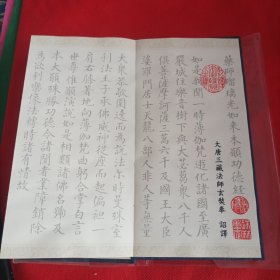 藥師瑠璃光如來本願功德經
大唐三藏法師玄奘奉 詔譯
如是我聞一時薄伽梵遊化諸國至廣
嚴城住樂音樹下與大苾芻眾八千人
俱菩薩摩訶薩三萬六千及國王大臣
婆羅門居士天龍八部人非人等無量
大眾恭敬圍遶而為說法爾時曼殊室
利法王子承佛威神從座而起偏袒一
肩右膝著地向薄伽梵曲躬合掌白言
世尊惟願演說如是相類諸佛名號及
本大願殊勝功德令諸聞者業障銷除
為欲利樂像法轉時諸有情故